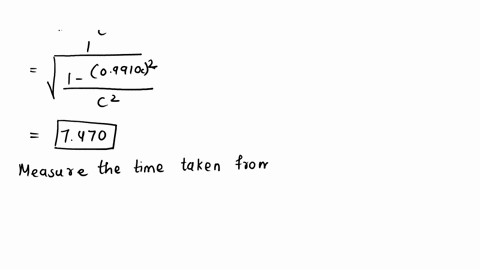 1
= √ 1 - (0.9910c)²
C²
= 7.470
Measure the time taken from